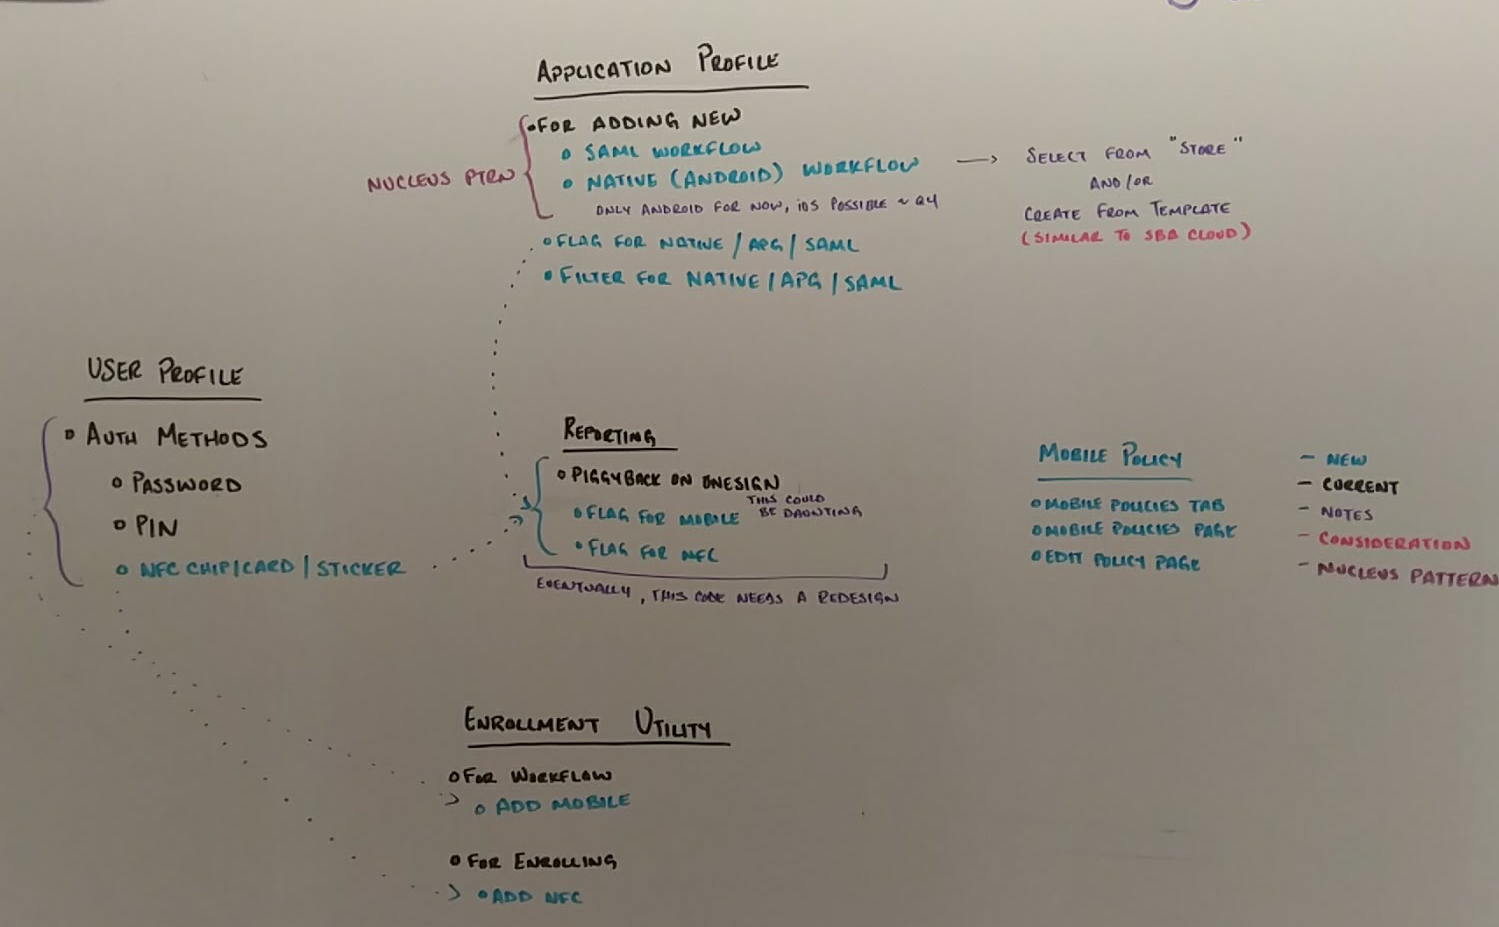 APPLICATION PROFILE
FOR ADDING NEW
SAML WORKFLOW
NUCLEUS PTRN
NATIVE (ANDROID) WORKFLOW
ONLY ANDROID FOR NOW, iOS POSSIBLE ~ Q4
SELECT FROM "STORE"
AND/OR
CREATE FROM TEMPLATE
(SIMILAR TO SBA CLOUD)
FLAG FOR NATIVE / APG / SAML
FILTER FOR NATIVE / APG / SAML
USER PROFILE
AUTH METHODS
PASSWORD
PIN
NFC CHIP/CARD/STICKER
REPORTING
PIGGYBACK ON ONESIGN
FLAG FOR MOBILE
THIS COULD
BE DAUNTING
FLAG FOR NFC
EVENTUALLY, THIS CODE NEEDS A REDESIGN
MOBILE POLICY
MOBILE POLICIES TAB
MOBILE POLICIES PAGE
EDIT POLICY PAGE
- NEW
- CURRENT
- NOTES
- CONSIDERATION
- NUCLEUS PATTERN
ENROLLMENT UTILITY
FOR WORKFLOW
ADD MOBILE
FOR ENROLLING
ADD NFC